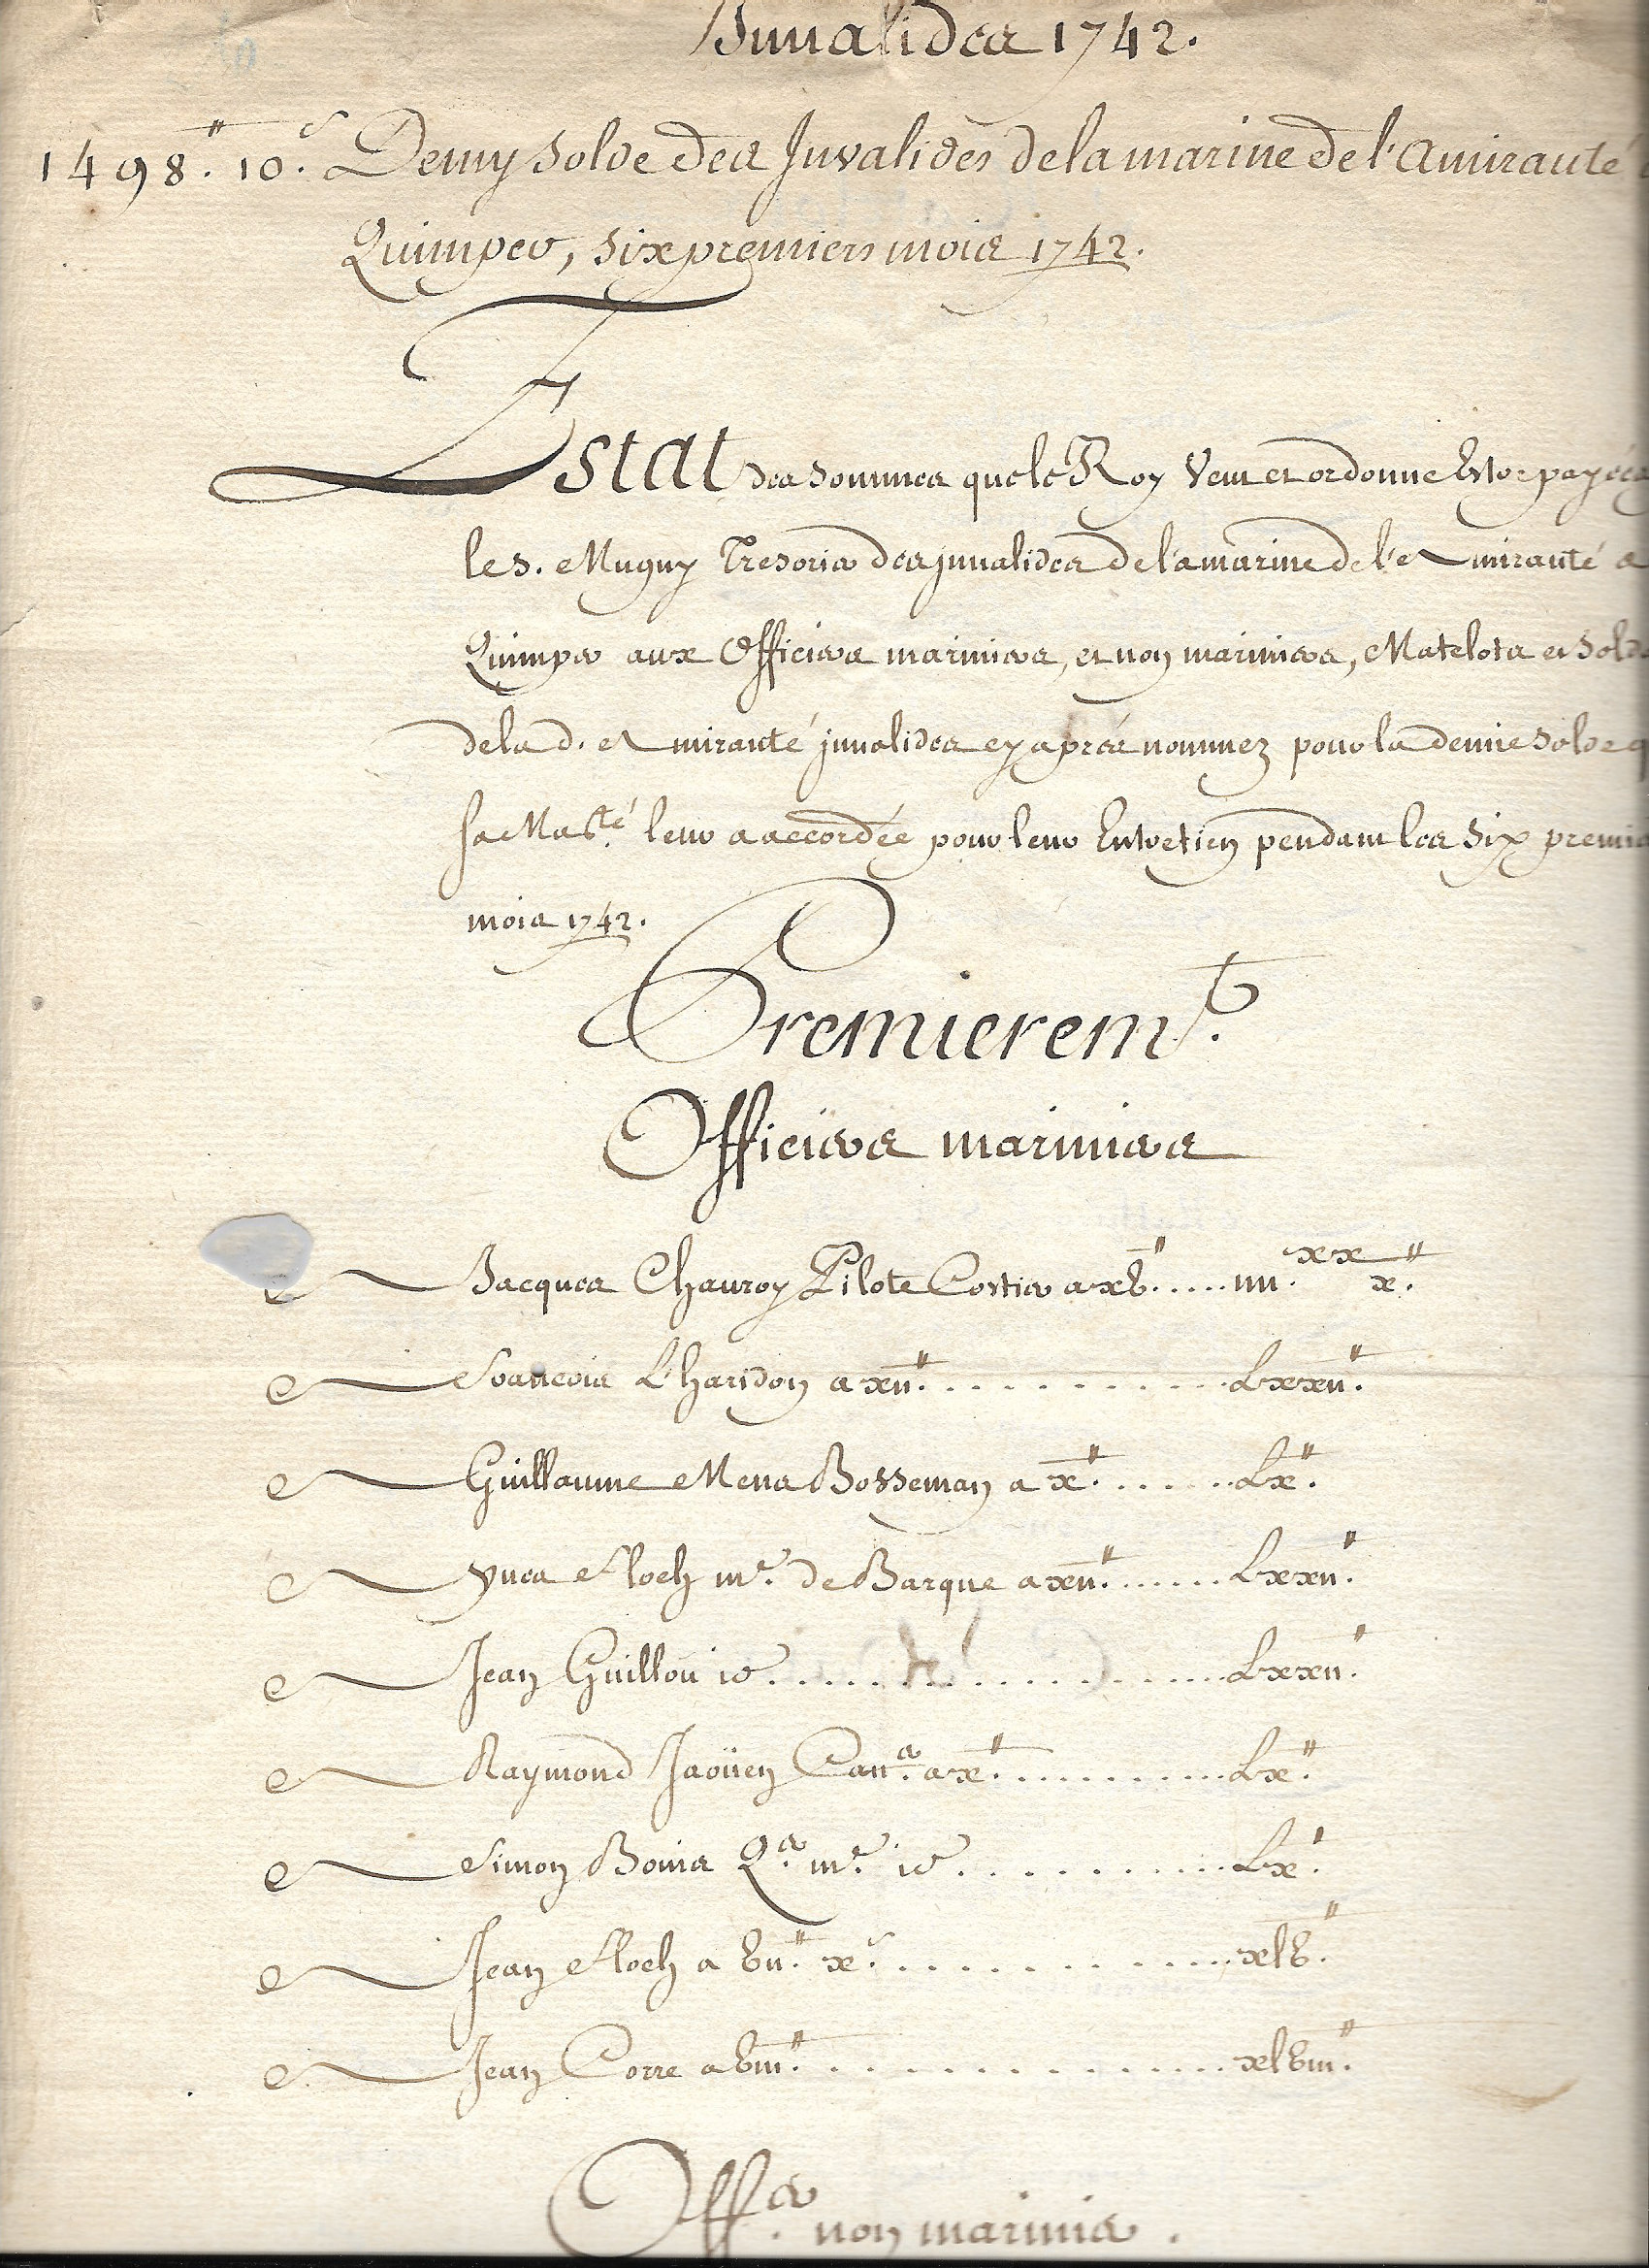 Inualides 1742.
1498.ᴴ 10.ˢ Demy solde des Invalides de la marine de l'amirauté
Quimper, six premiers mois 1742.
Estat des sommes que le Roy Veut et ordonne Estre payées
le s. Muguy Tresorier des jnualides de la marine de l'Amirauté
Quimper aux Officiers mariniers, et non mariniers, Matelots et Sold
de la d. Amirauté jnualides cy après nommez pour la demie solde q
sa Ma.ᵗᵉ́ leur a accordée pour leur Entretien pendant les six premie
mois 1742.
Premierem.ᵗ
Officiers mariniers
Jacques Chauroy Pilote Costier a xv.ᴴ ..... iiii.ˣˣ x.ᴴ
Francois L'haridon a xii.ᴴ ........... Lxxii.ᴴ
Guillaume Menes Bosseman a x.ᴴ ...... Lx.ᴴ
Yues Floch m.ᵉ de Barque a xii.ᴴ ...... Lxxii.ᴴ
Jean Guillou id ................ Lxxii.ᴴ
Raymond Jaoüen Can.ᵉʳ a x.ᴴ .......... Lx.ᴴ
Simon Q.ᵉʳ m.ᵉ id .......... Lx.ᴴ
Jean Floch a vii.ᴴ x.ˢ ............ xlv.ᴴ
Jean Corre a viii.ᴴ ............ xlviii.ᴴ
Off.ᵉʳˢ non mariniers.